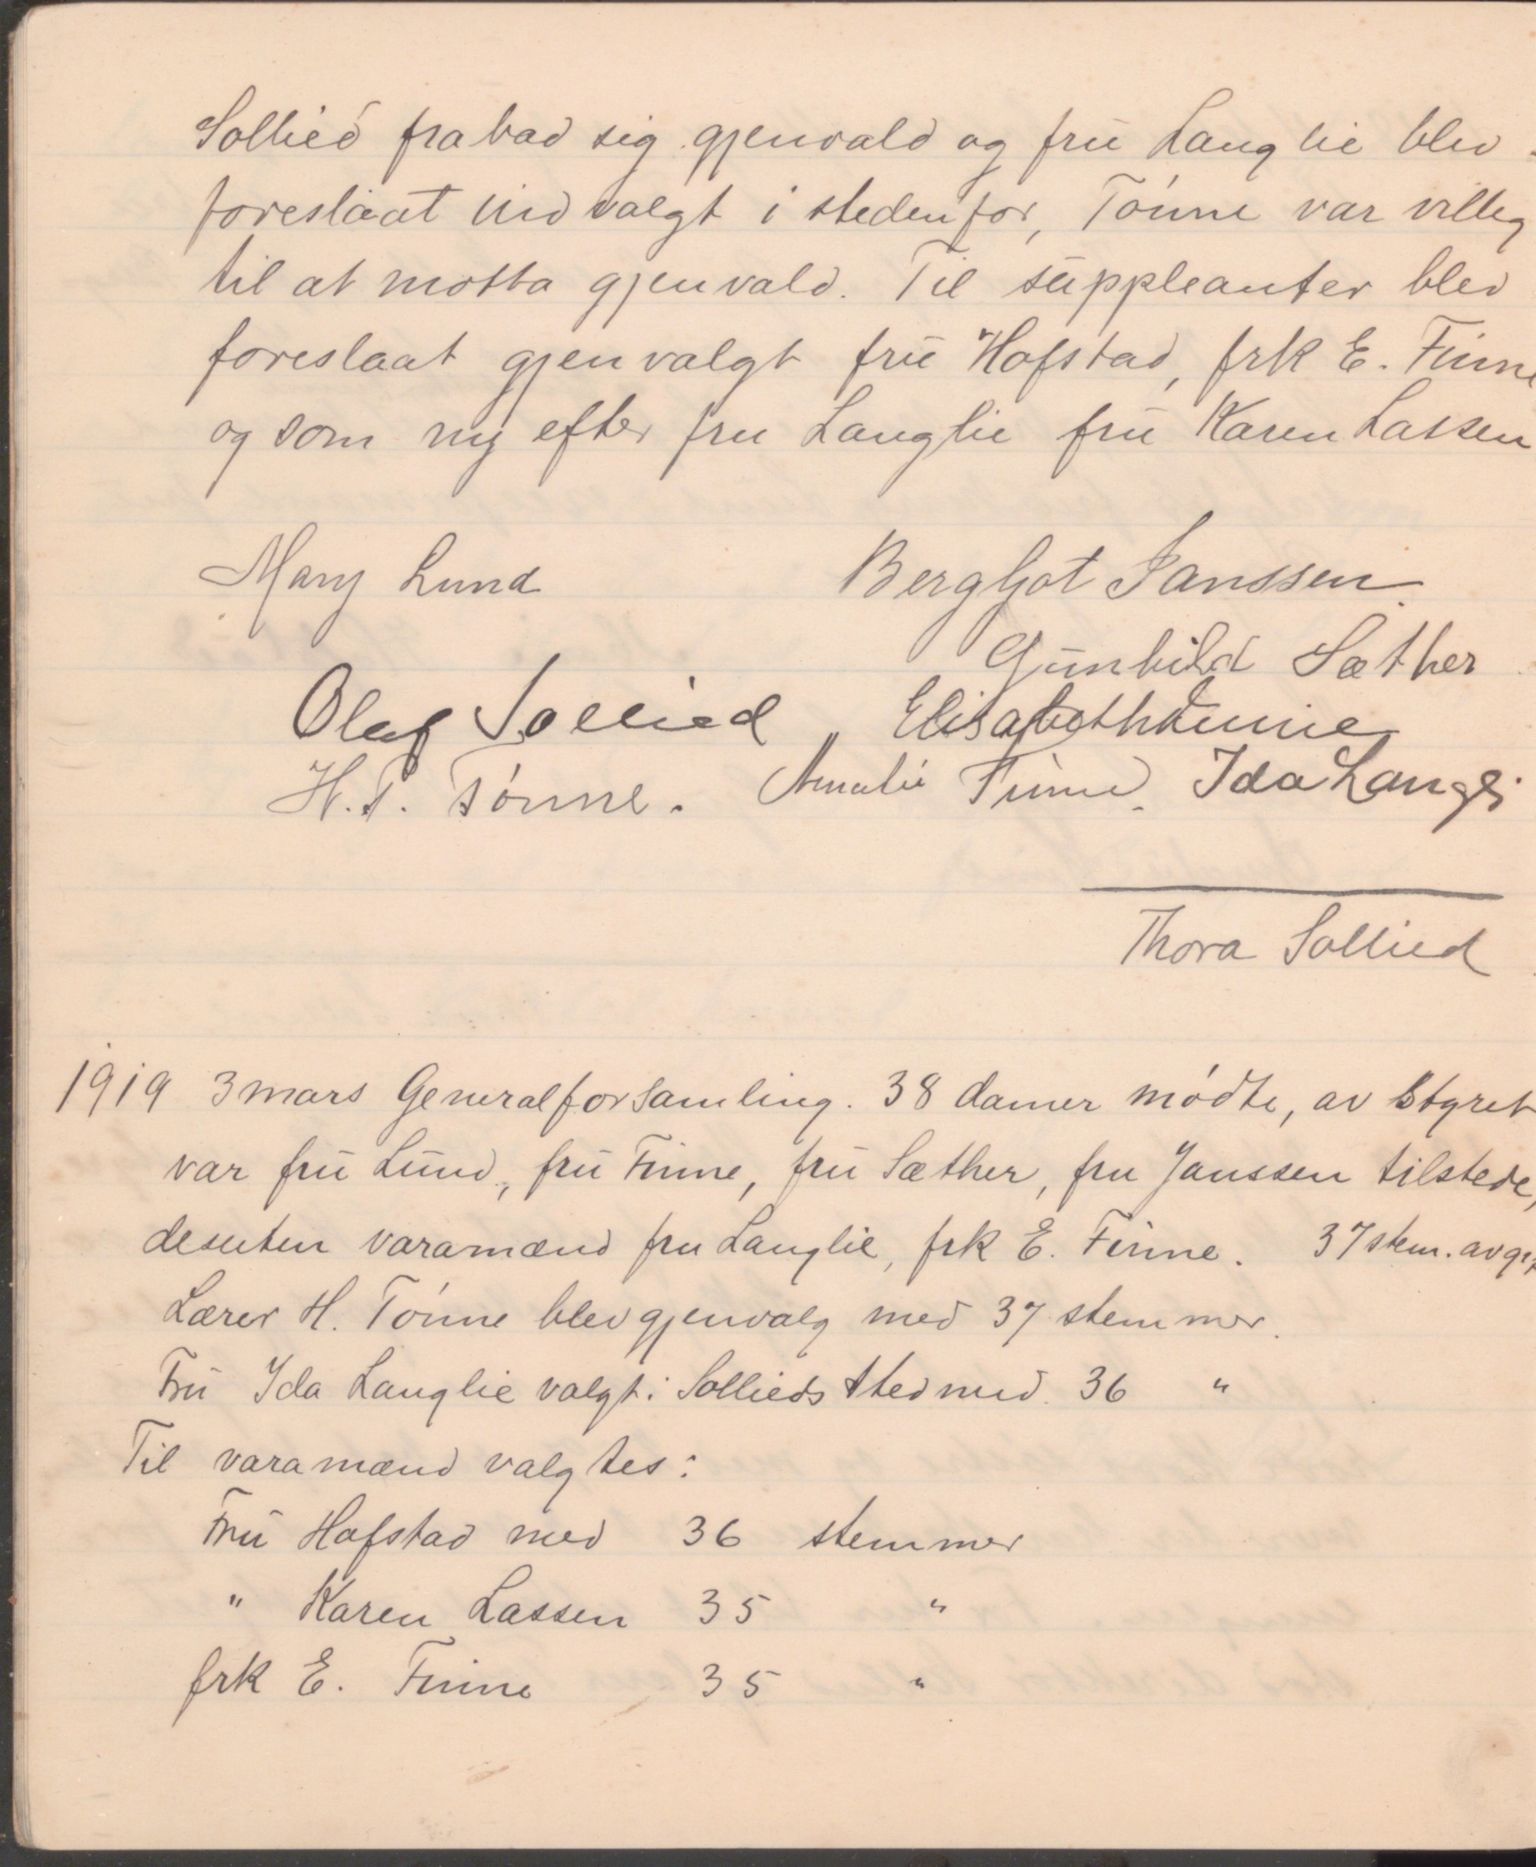 Sollied frabad sig gjenvald og fru Langlie blev
foreslaat ind valgt i stedenfor, Tønne var villig
til at motta gjenvald. Til suppleanter blev
foreslaat gjenvalgt fru Hofstad, frk E. Finne
og som ny efter fru Langlie fru Karen Lassen
Mary Lund Bergljot Janssen.
Gunhild Sæther
Olaf Sollied Elisabeth Finne
H. T. Tønne. Amalie Finne. Ida Langli
Thora Sollied
1919 3 mars Generalforsamling. 38 damer mødte, av Styret
var fru Lund, fru Finne, fru Sæther, fru Janssen tilstede,
desuten varamænd fru Langlie, frk E. Finne. 37 stem.
Lærer H. Tønne blev gjenvalg med 37 stemmer.
Fru Ida Langlie valgt i Sollieds sted med 36 "
Til varamænd valgtes:
Fru Hofstad med 36 stemmer
" Karen Lassen 35 "
frk E. Finne 35 "